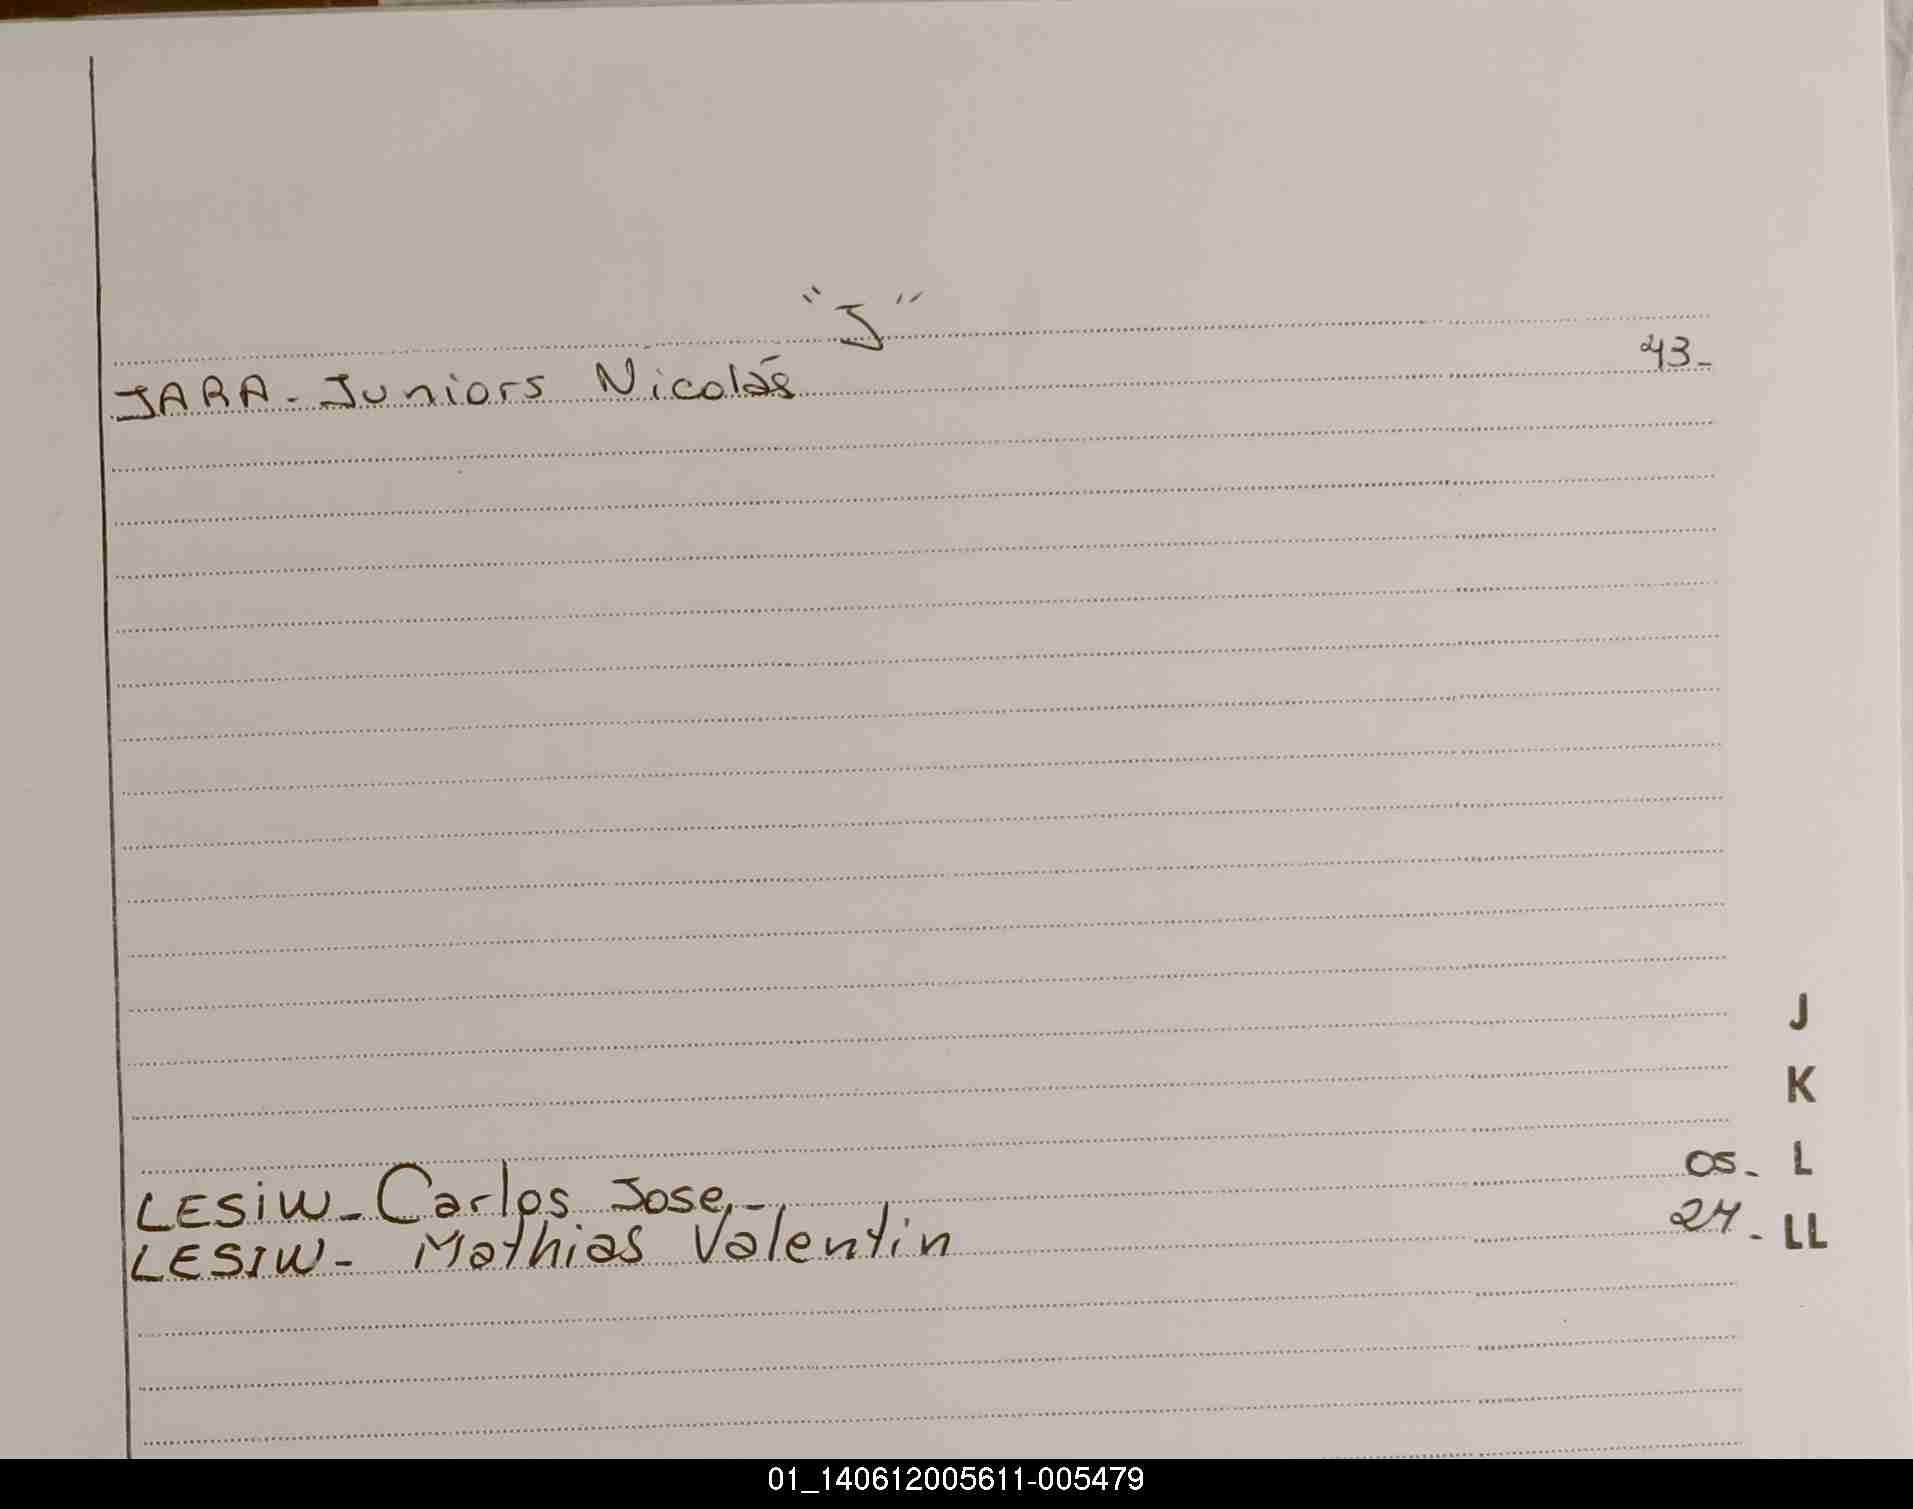 "J"
JARA - Juniors Nicolás 43-
J
K
LESiW - Carlos Jose,- 05.- L
LESIW - Mathias Valentin 24.- LL
01_140612005611-005479